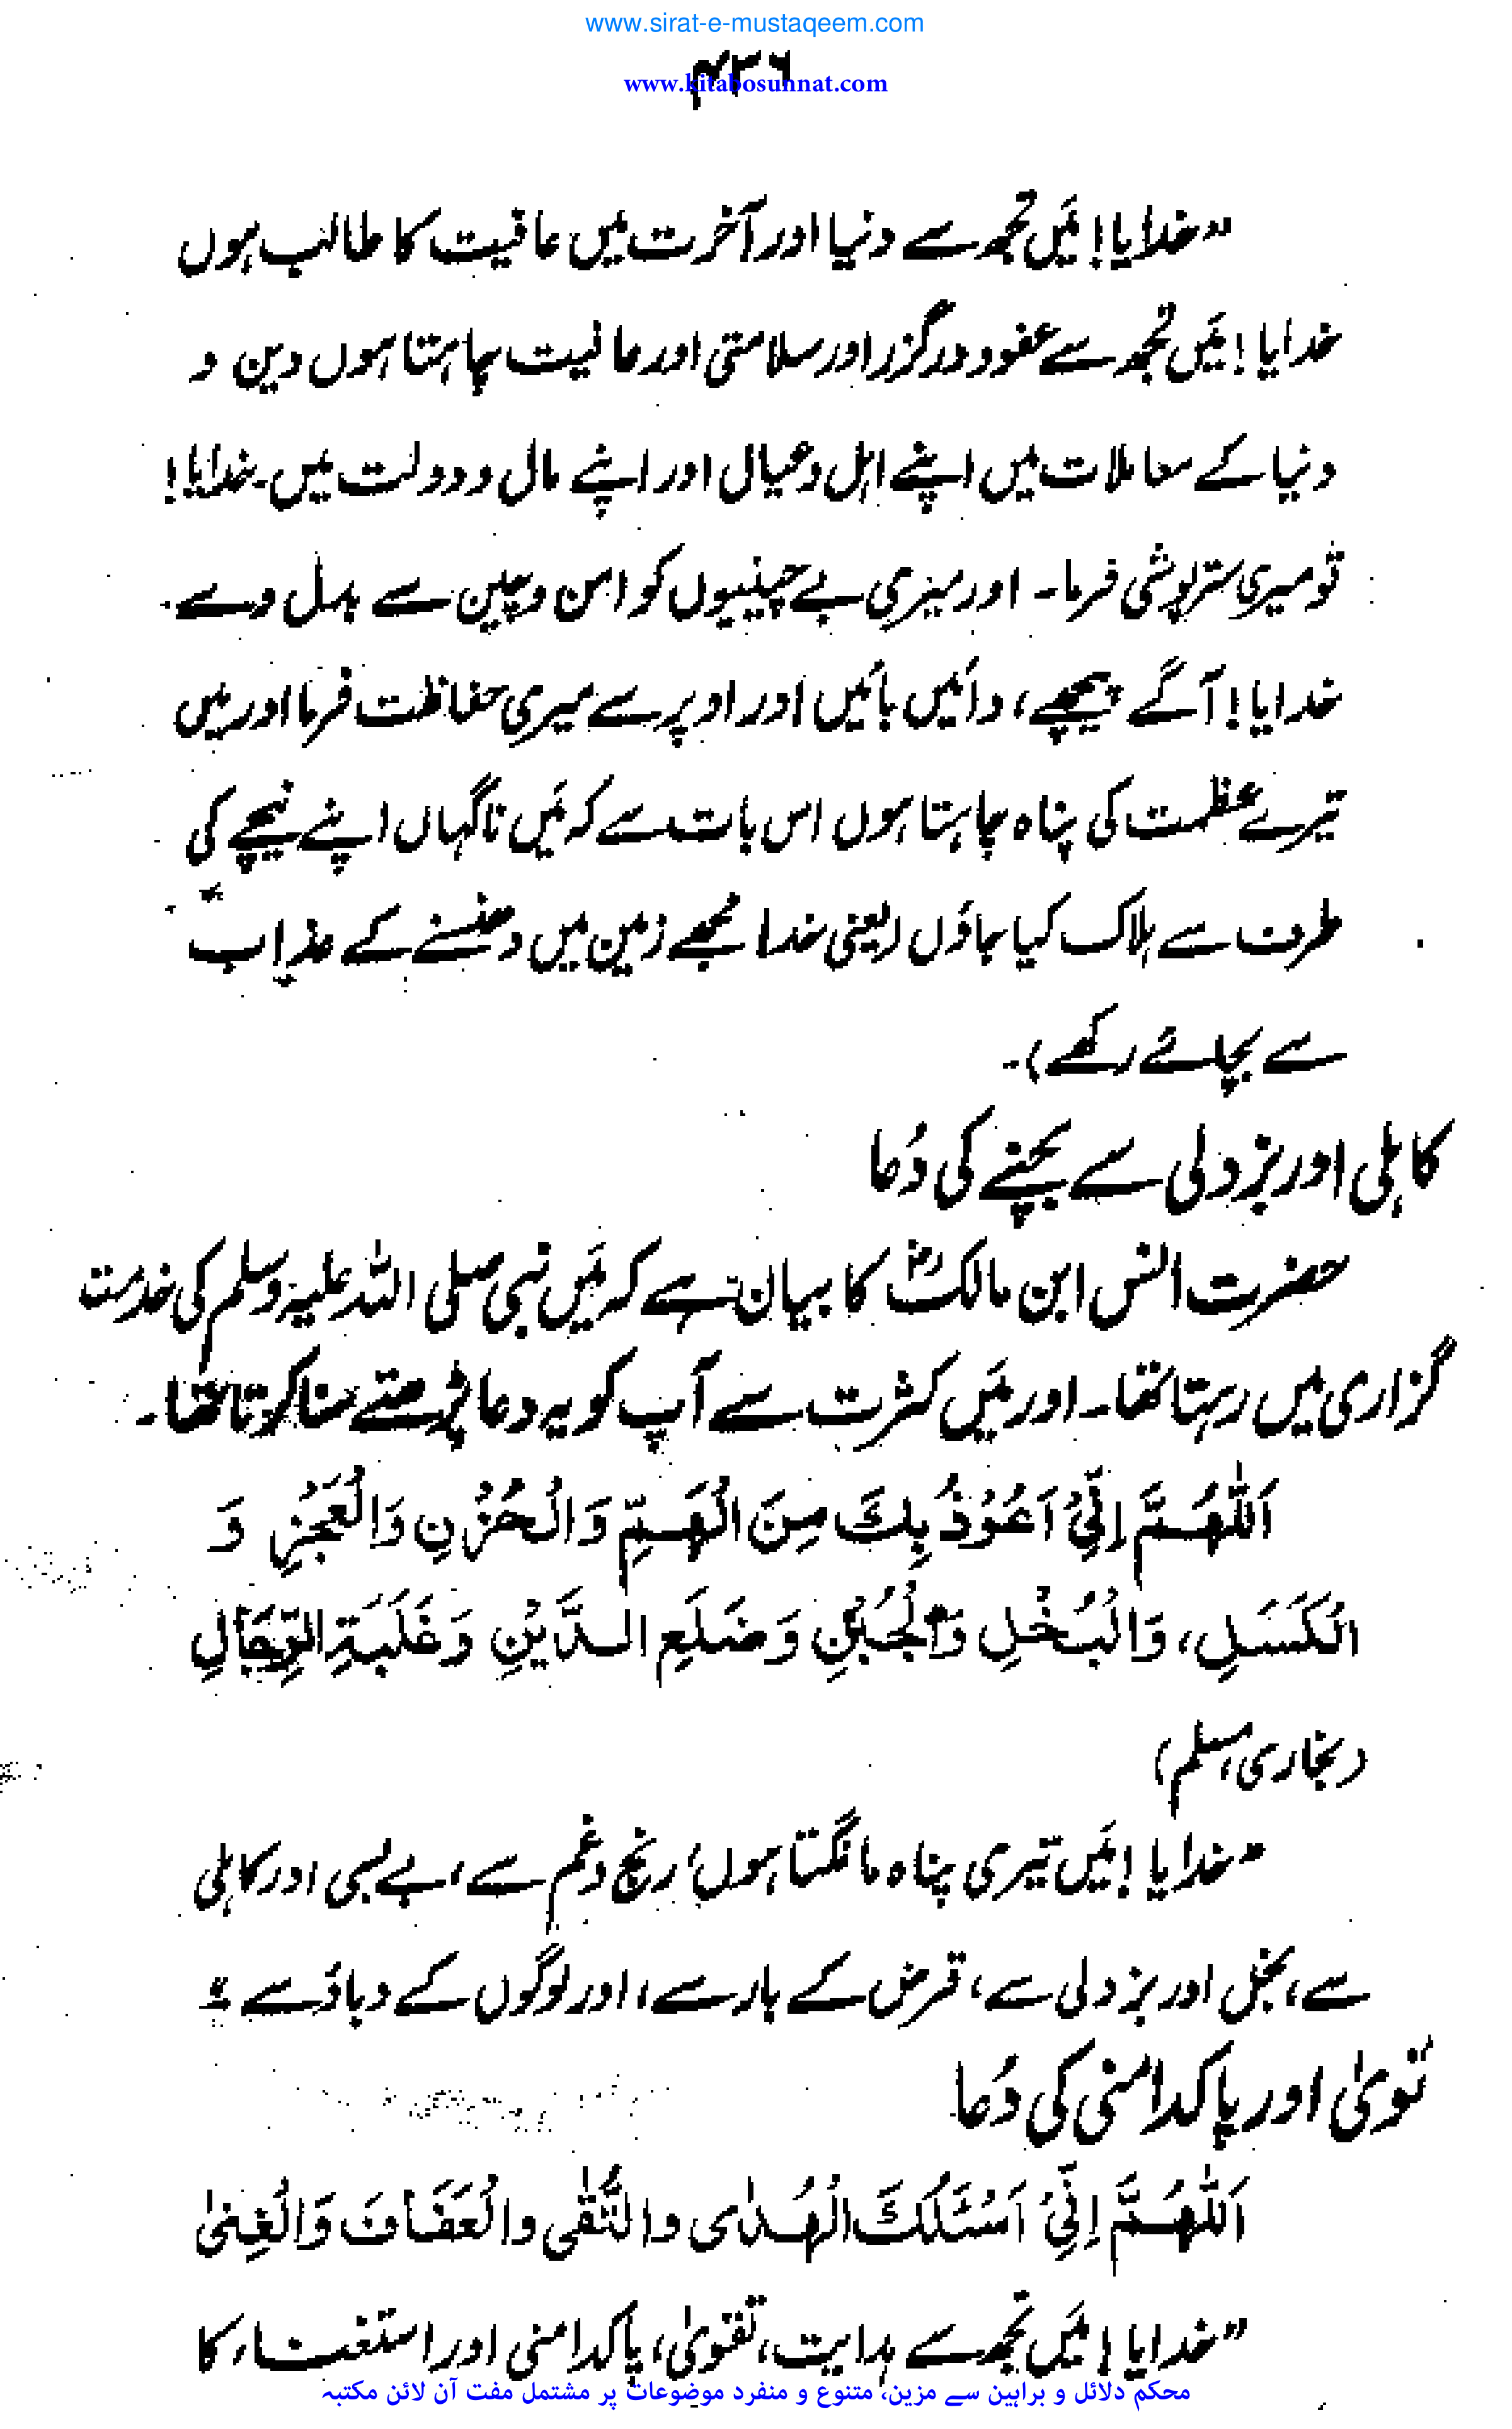 www.sirat-e-mustaqeem.com
۴۳۶
www.kitabosunnat.com
"خدایا! مَیں تجھ سے دنیا اور آخرت میں عافیت کا طالب ہوں
خدایا! مَیں تجھ سے عفو و درگزر اور سلامتی اور عافیت چاہتا ہوں دین و
دنیا کے معاملات میں اپنے اہل و عیال اور اپنے مال و دولت میں۔ خدایا!
تو میری ستر پوشی فرما۔ اور میری بے چینیوں کو امن و چین سے بدل دے۔
خدایا! آگے پیچھے، دائیں بائیں اور اوپر سے میری حفاظت فرما اور میں
تیرے عظمت کی پناہ چاہتا ہوں اس بات سے کہ مَیں ناگہاں اپنے نیچے کی
طرف سے ہلاک کیا جاؤں (یعنی خدا مجھے زمین میں دھنسنے کے عذاب
سے بچائے رکھے)۔
کاہلی اور بزدلی سے بچنے کی دُعا
حضرت انس ابن مالکؓ کا بیان ہے کہ مَیں نبی صلی اللہ علیہ وسلم کی خدمت
گزاری میں رہتا تھا۔ اور مَیں کثرت سے آپ کو یہ دعا پڑھتے سنا کرتا تھا۔
اَللّٰهُمَّ اِنِّیْ اَعُوْذُ بِكَ مِنَ الْهَمِّ وَالْحُزْنِ وَالْعَجْزِ وَ
الْكَسَلِ، وَالْبُخْلِ وَالْجُبْنِ وَضَلَعِ الدَّيْنِ وَغَلَبَةِ الرِّجَالِ
(بخاری، مسلم)
"خدایا! مَیں تیری پناہ مانگتا ہوں، رنج و غم سے، بے بسی اور کاہلی
سے، بخل اور بزدلی سے، قرض کے بار سے، اور لوگوں کے دباؤ سے"
تقویٰ اور پاکدامنی کی دُعا
اَللّٰهُمَّ اِنِّیْ اَسْئَلُكَ الْهُدٰی والتُّقٰی والْعَفَافَ وَالْغِنیٰ
"خدایا! مَیں تجھ سے ہدایت، تقویٰ، پاکدامنی اور استغناء کا
محکم دلائل و براہین سے مزین، متنوع و منفرد موضوعات پر مشتمل مفت آن لائن مکتبہ